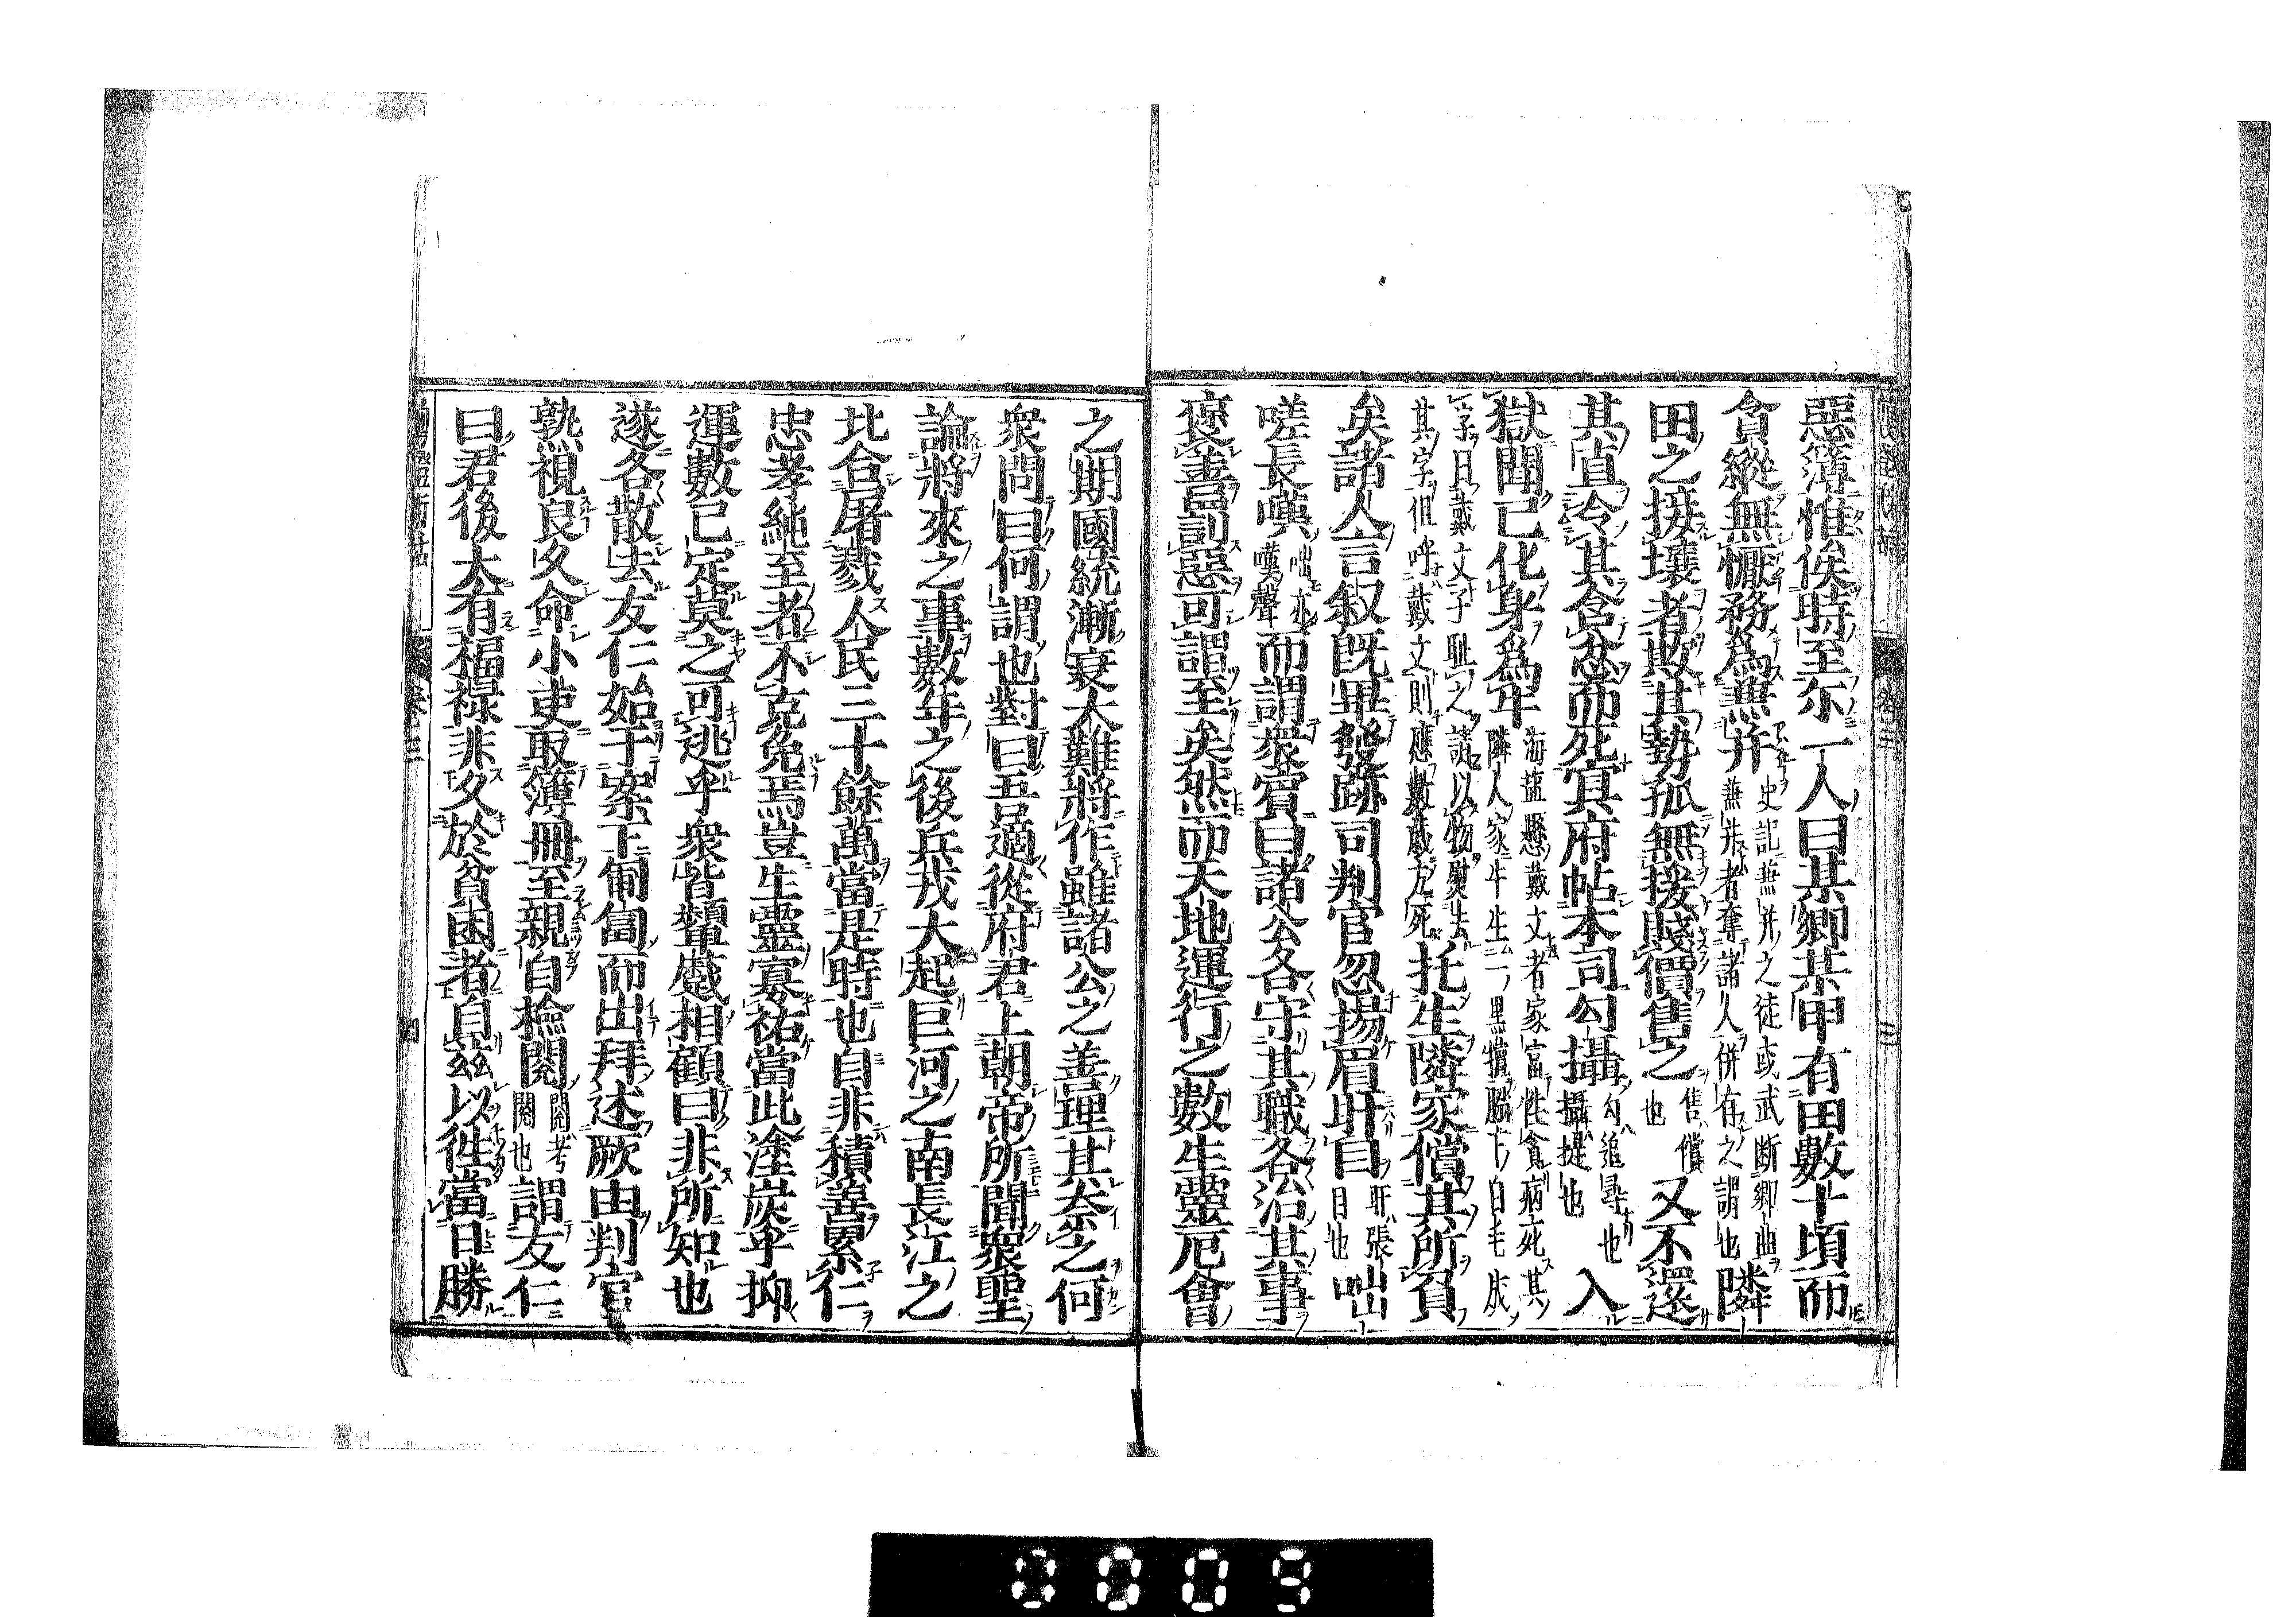 惡簿惟俟時至尓一人曰某鄉某甲有田數十頃而
貪縱無懨務爲兼并史記兼并之徒或武断鄉曲兼并者奪諸人併有之謂也隣
田之接壤者欺其勢孤無援賤價售之售償也又不還
其直令其含忿而死冥府帖本司勾攝勾追尋也攝提也入
獄聞已化身爲牛海塩縣戴文者家富性貪病死其隣人家牛生一黒犢脇下白毛成
字曰戴文子耻之請以物熨去其字但呼戴文則應數歳方死托生隣家償其所負
矣諸人言叙既畢發跡司判官忽揚眉盱目盱張目也咄
嗟長嘆咄亦嘆聲而謂衆賓曰諸公各守其職各治其事
褒善罰惡可謂至矣然而天地運行之數生靈厄會
之期國統漸衰大難將作雖諸公之善理其奈之何
衆問曰何謂也對曰吾適從府君上朝帝所聞衆聖
論將來之事數年之後兵戎大起巨河之南長江之
北合屠戮人民三十餘萬當是時也自非積善累仁
忠孝純至者不克免焉豈生靈寡祐當此塗炭乎抑
運數已定莫之可逃乎衆皆顰蹙相顧曰非所知也
遂各散去友仁始于案下匍匐而出拜述厥由判官
熟視良久命小吏取簿冊至親自檢閱閱考閱也謂友仁
曰君後大有福禄非久於貧困者自茲以徃當日勝
卷三
三
卷三
四
0009